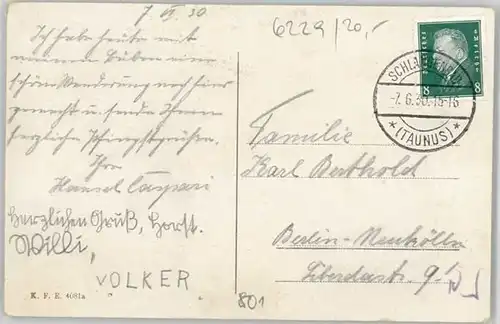 7 VI 30
6229/20,-
Ich habe heute mit
meinen Buben eine
schöne Wanderung nach hier
gemacht u. sende Ihnen
herzliche Pfingstgrüße.
Ihr
Hansel Caspari
Herzlichen Gruß, Horst.
Willi,
VOLKER
K. F. E. 4081a
801
Deutsches Reich
8 8
SCHLA
-7.6.30. 15-16
* (TAUNUS) *
Familie
Karl Berthold
Berlin-Neukölln
9